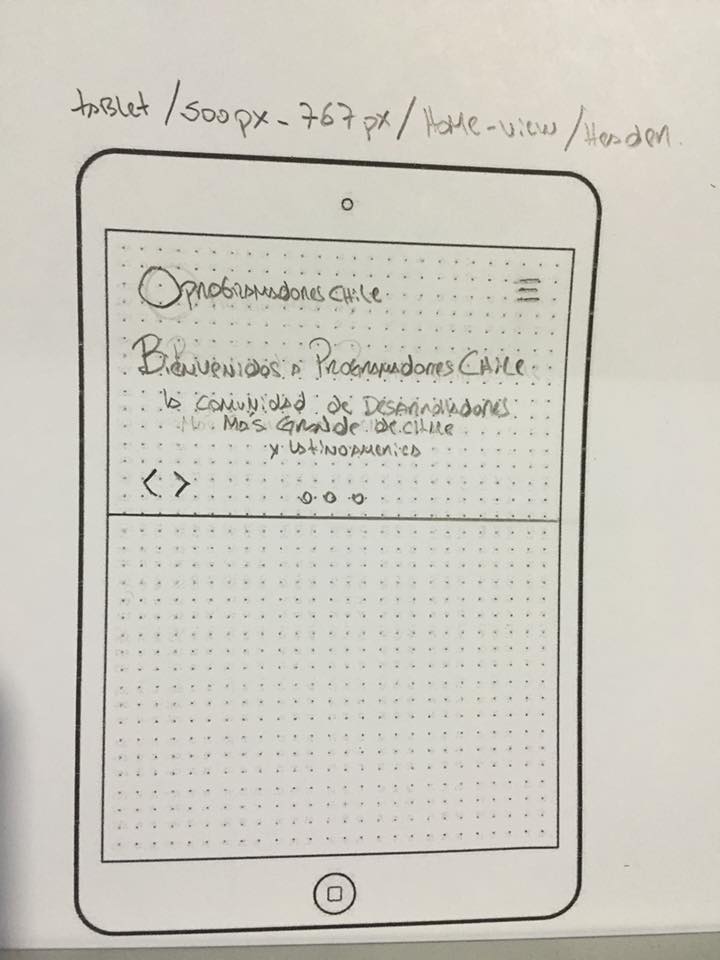 tablet / 500px - 767px / Home-view / Header.
Programadores Chile
Bienvenidos a Programadores Chile
la comunidad de Desarrolladores
Más Grande de chile
y Latinoamerica
< >